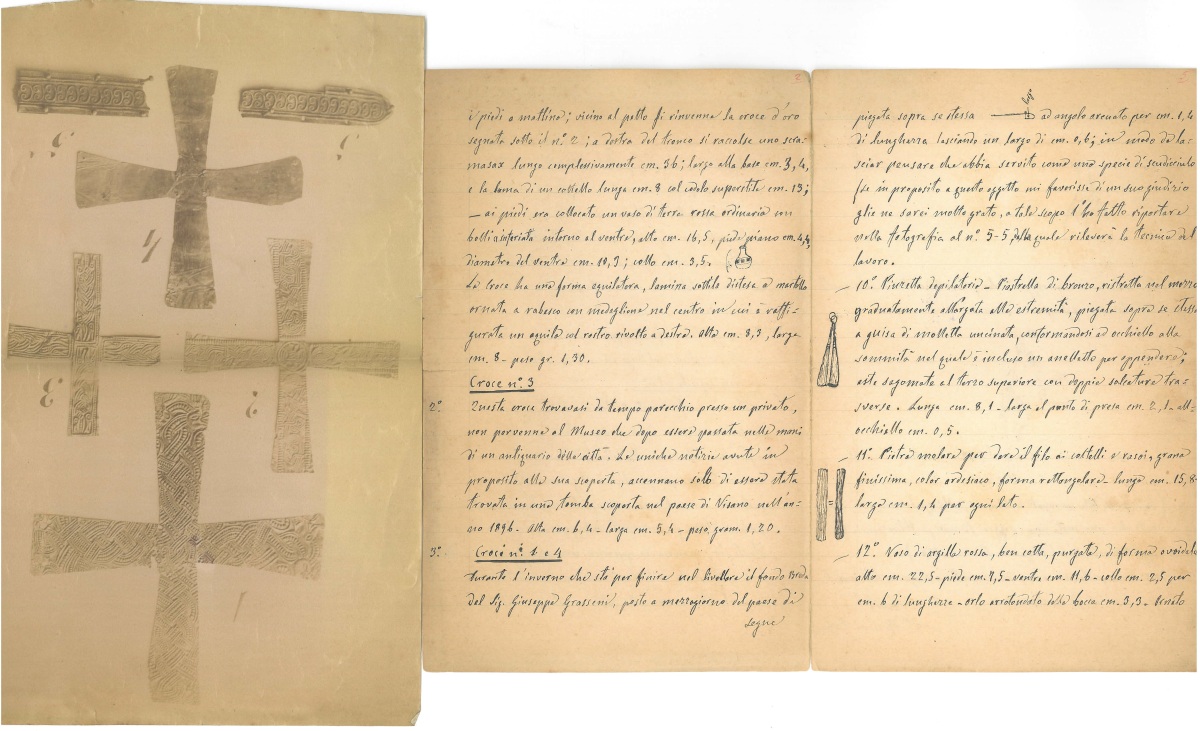 5
5
4
3
2
1
2
i piedi a mattina; vicino al petto si rinvenne la croce d'oro
segnata sotto il nº 2; a destra del tronco si raccolse uno scra-
masax lungo complessivamente cm. 36; largo alla base cm. 3,4,
e la lama di un coltello lunga cm. 8 col codolo superstite cm. 13;
— ai piedi era collocato un vaso di terra rossa ordinaria con
intorno al ventre, alto cm. 16,5, piede piano cm. 4,4,
diametro del ventre cm. 10,3; collo cm. 3,5.
La Croce ha una forma equilatera, lamina sottile distesa a martello
ornata a rabesco con medaglione nel centro in cui è raffi-
gurata un aquila col rostro rivolto a destra. Alta cm. 8,3, larga
cm. 8 - peso gr. 1,30.
Croce nº. 3
2º. Questa croce trovavasi da tempo parecchio presso un privato,
non pervenne al Museo che dopo essere passata nelle mani
di un antiquario della città. Le uniche notizie avute in
proposito alla sua scoperta, accennano solo di essere stata
trovata in una tomba scoperta nel paese di Visano nell'an-
no 1896. Alta cm. 6,4 - larga cm. 5,4 - peso gram. 1,20.
3º. Croce nº. 1 e 4
Durante l'inverno che stà per finire nel livellare il fondo Breda
del Sig. Giuseppe Grasseni, posto a mezzogiorno del paese di
segue
piegata sopra se stessa ad angolo arcuato per cm. 1,4
di lunghezza lasciando un largo di cm. 0,6; in modo da la-
sciar pensare che abbia servito come una specie di scudicciolo
(se in proposito a questo oggetto mi favorisse di un suo giudizio
glie ne sarei molto grato, a tale scopo l'ho fatto riportare
nella fotografia al nº. 5-5, dalla quale rileverà la tecnica del
lavoro.
— 10º. Pinzetta depilatoria - Piastrella di bronzo, ristretta nel mezzo
gradatamente allargata alle estremità, piegata sopra se stessa
a guisa di molletta uncinata, conformandosi ad occhiello alla
sommità nel quale è incluso un anelletto per appendere;
aste sagomate al terzo superiore con doppie solcature tra-
sverse. Lunga cm. 8,1 - larga al punto di presa cm. 2,1 - all-
occhiello cm. 0,5.
— 11º. Pietra molare per dare il filo ai coltelli e rasoi, grana
finissima, color ardesiaco, forma rettangolare - lunga cm. 15,8-
larga cm. 1,4 per ogni lato.
— 12º. Vaso di argilla rossa, ben cotta, purgata, di forma ovoidale
alto cm. 22,5 - piede cm. 7,5 - ventre cm. 11,6 - collo cm. 2,5 per
cm. 6 di lunghezza - orlo arrotondato della bocca cm. 3,3 - Ornato